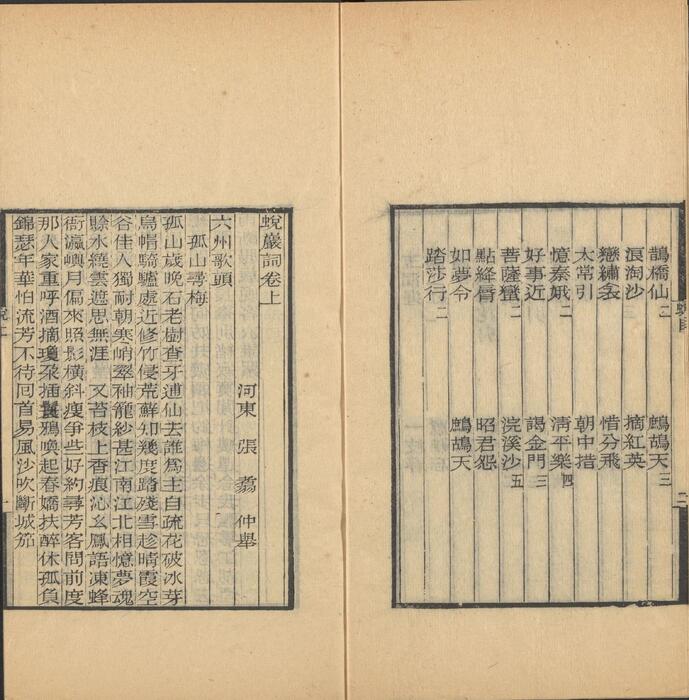 鵲橋仙二 鷓鴣天三
浪淘沙 摘紅英
戀繡衾 惜分飛
太常引 朝中措
憶秦娥二 清平樂四
好事近 謁金門三
菩薩蠻二 浣溪沙五
點絳脣 昭君怨
如夢令 鷓鴣天
踏莎行二
蛻巖詞卷上
河東 張翥 仲舉
六州歌頭
孤山尋梅
孤山歲晚石老樹查牙逋仙去誰爲主自疏花破冰芽
烏帽騎驢處近修竹侵荒蘚知幾度踏殘雪趁晴霞空
谷佳人獨耐朝寒峭翠袖籠紗甚江南江北相憶夢魂
賒水繞雲遮思無涯 又苔枝上香痕沁幺鳳語凍蜂
衙瀛嶼月偏來照影橫斜瘦爭些好約尋芳客問前度
那人家重呼酒摘瓊朶插鬟鴉喚起春嬌扶醉休孤負
錦瑟年華怕流芳不待囘首易風沙吹斷城笳